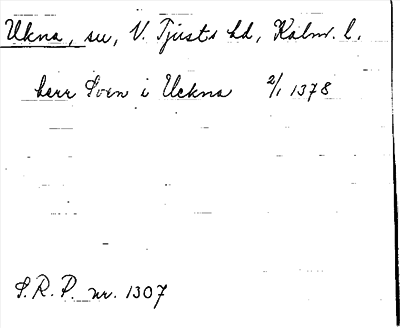 Ukna, sn, V. Tjusts hd, Kalm. l.
herr Sven i Uckna 2/1 1378
S.R.P. nr. 1307